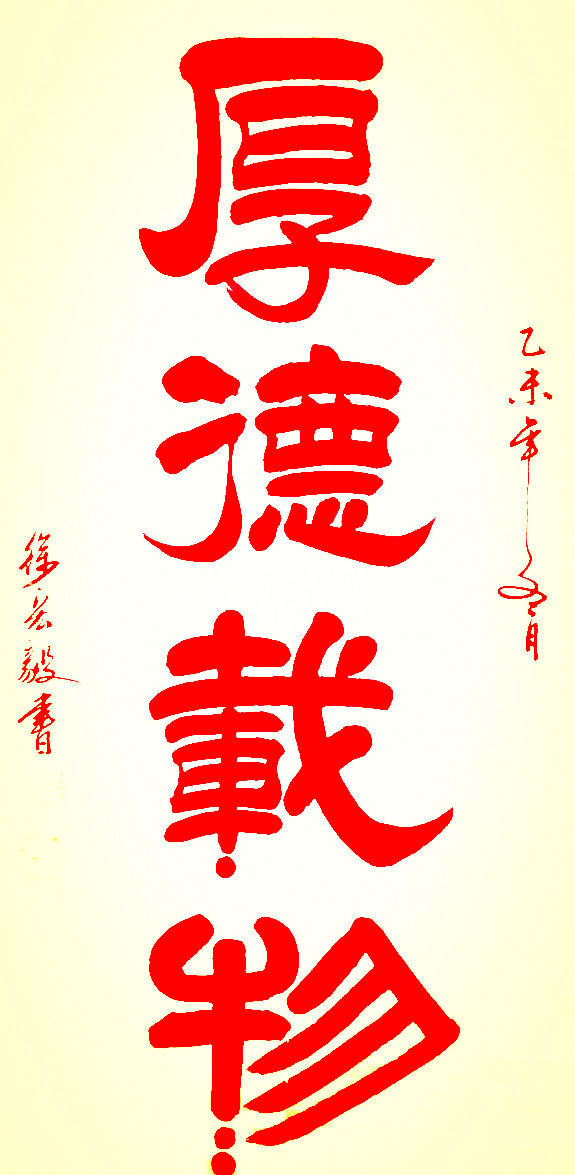 乙未年冬月
厚德載物
徐宏毅書